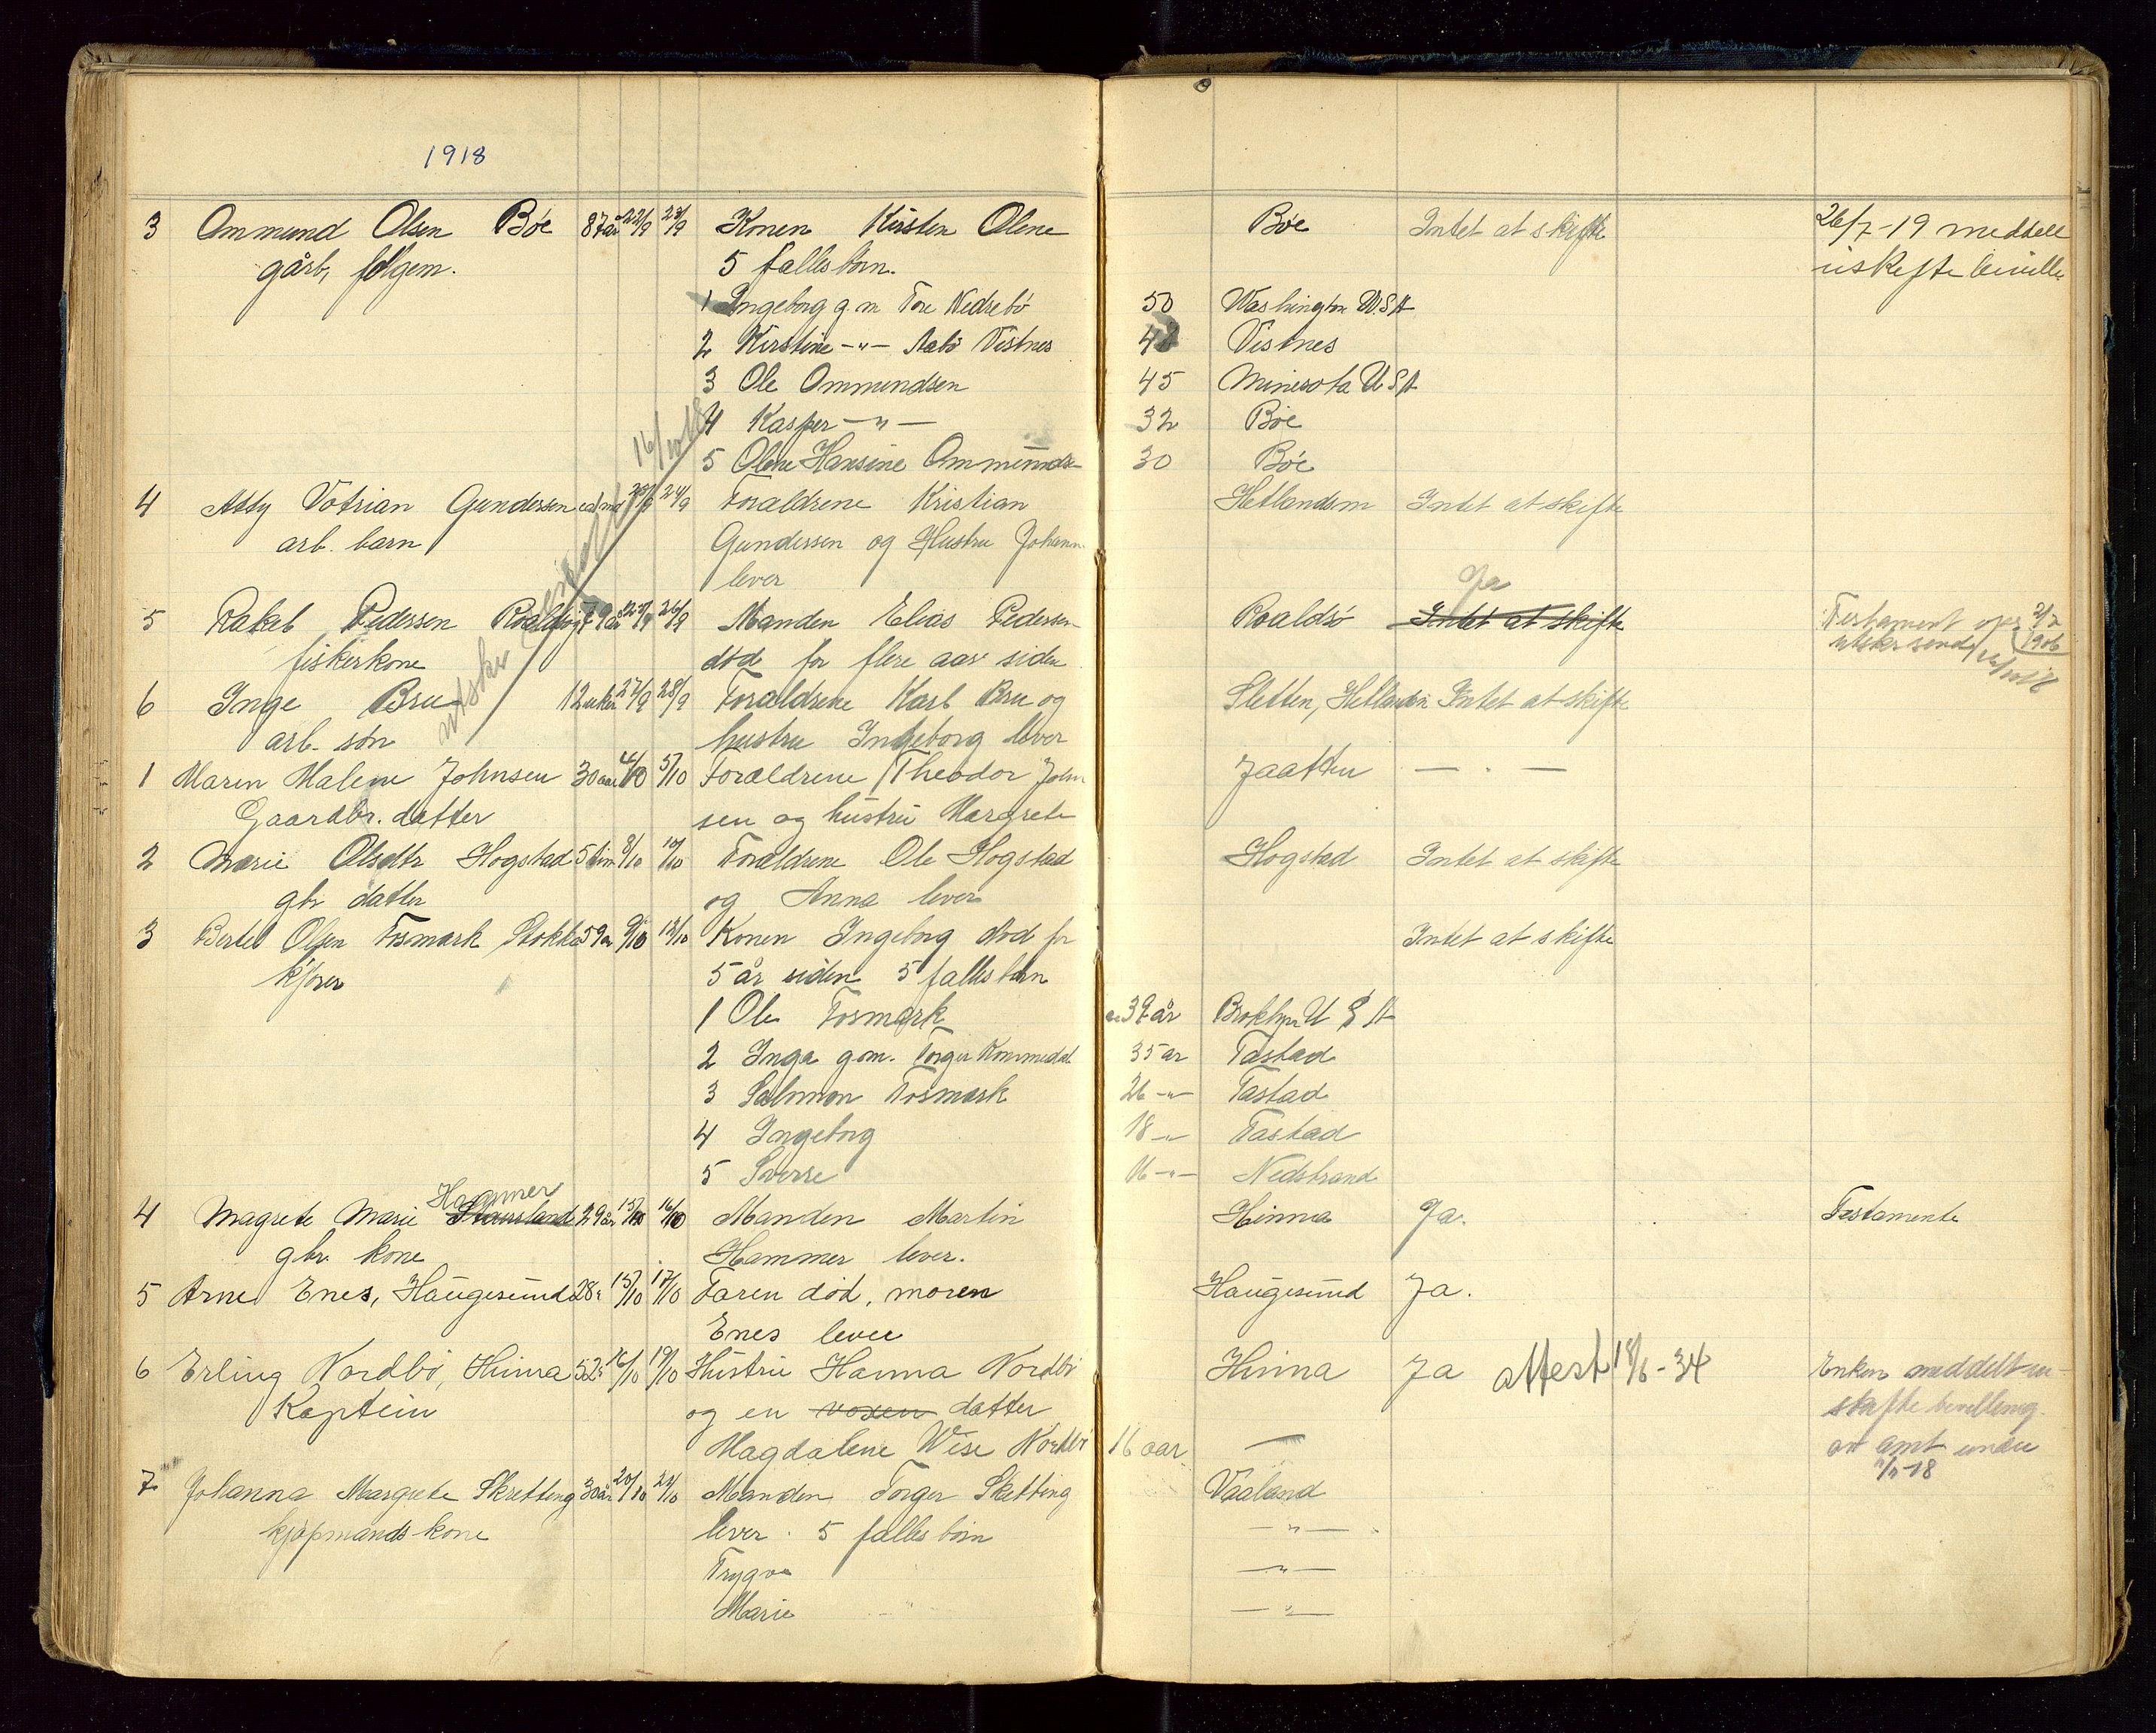 1918
3 Ommund Olsen Bøe 87 år 22/9 23/9 Konen Kirsten Olene Bøe Intet at skifte 26/7-19 meddelt
gårb, følgem. 5 fallesbørn. uskifte
1 Ingeborg g.m Tore Nedrebø 50 Washington U.S.A
2 Kirstine -"- Vistnes 48 Vistnes
3 Ole Ommundsen 45 Minesota USA
4 Kasper -"- 32 Bøe
5 Olene Hansine Ommunds- 30 Bøe
4 Gundersen 24/9 Foraldrene Kristian Hetlandsm Intet at skifte
arb. barn Gundersen og Hustru Johann
lever
Ja
5 Rakel Pedersen 79 år 26/9 Manden Elias Pedersen Roaldsø Intet at skifte Testament 2/7
fiskerkone død for flere aar siden 1906
6 Inge Bru 12 uker 27/9 28/9 Foraldrene Karl Bru og Sletten, Hetlandsm Intet at skifte
arb. søn hustru Ingeborg lever
1 Maren Malene Johnsen 30 aar 4/10 5/10 Forældrene Theodor John Jaatten — " —
Gaardbr. datter sen og hustru Margrete
2 Marie Olsdtr Hogstad 5 tim 8/10 10/10 Foraldrene Ole Hogstad Hogstad Intet at skifte
gbr datter og Anna lever
3 Bertel Olsen Fosmark Stokka 59 år 9/10 12/10 Konen Ingeborg død for Intet at skifte
kjører 5 år siden 5 fallesbørn
1 Ole Fosmark 39 år Broklyn U S A
2 Inga gm. Torger Kommedal 35 ar Tastad
3 Salomon Fosmark 26 -"- Tastad
4 Ingeborg 18 -"- Tastad
5 Sverre 16 -"- Nedstrand
Hammer
4 Magrete Marie 29 år 15/10 16/10 Manden Martin Hinna Ja. Testamente
gbr. kone Hammer lever.
5 Arne Enes, Haugesund 28 15/10 17/10 Faren død, moren Haugesund Ja.
Enes lever
6 Erling Nordbø, Hinna 52 16/10 19/10 Hustru Hanna Nordbø Hinna Ja attest 18/6-34 Enken meddelt u-
Kaptein og en voxen datter skifte bevilling
Magdalene Wise Nordbø 16 aar — av amt
-18
7 Johanna Margrete Skretting 30 år 20/10 24/10 Manden Torger Sketting Vaaland
kjøpmands kone lever. 5 fallesbørn -"-
Trygve -"-
Marie -"-